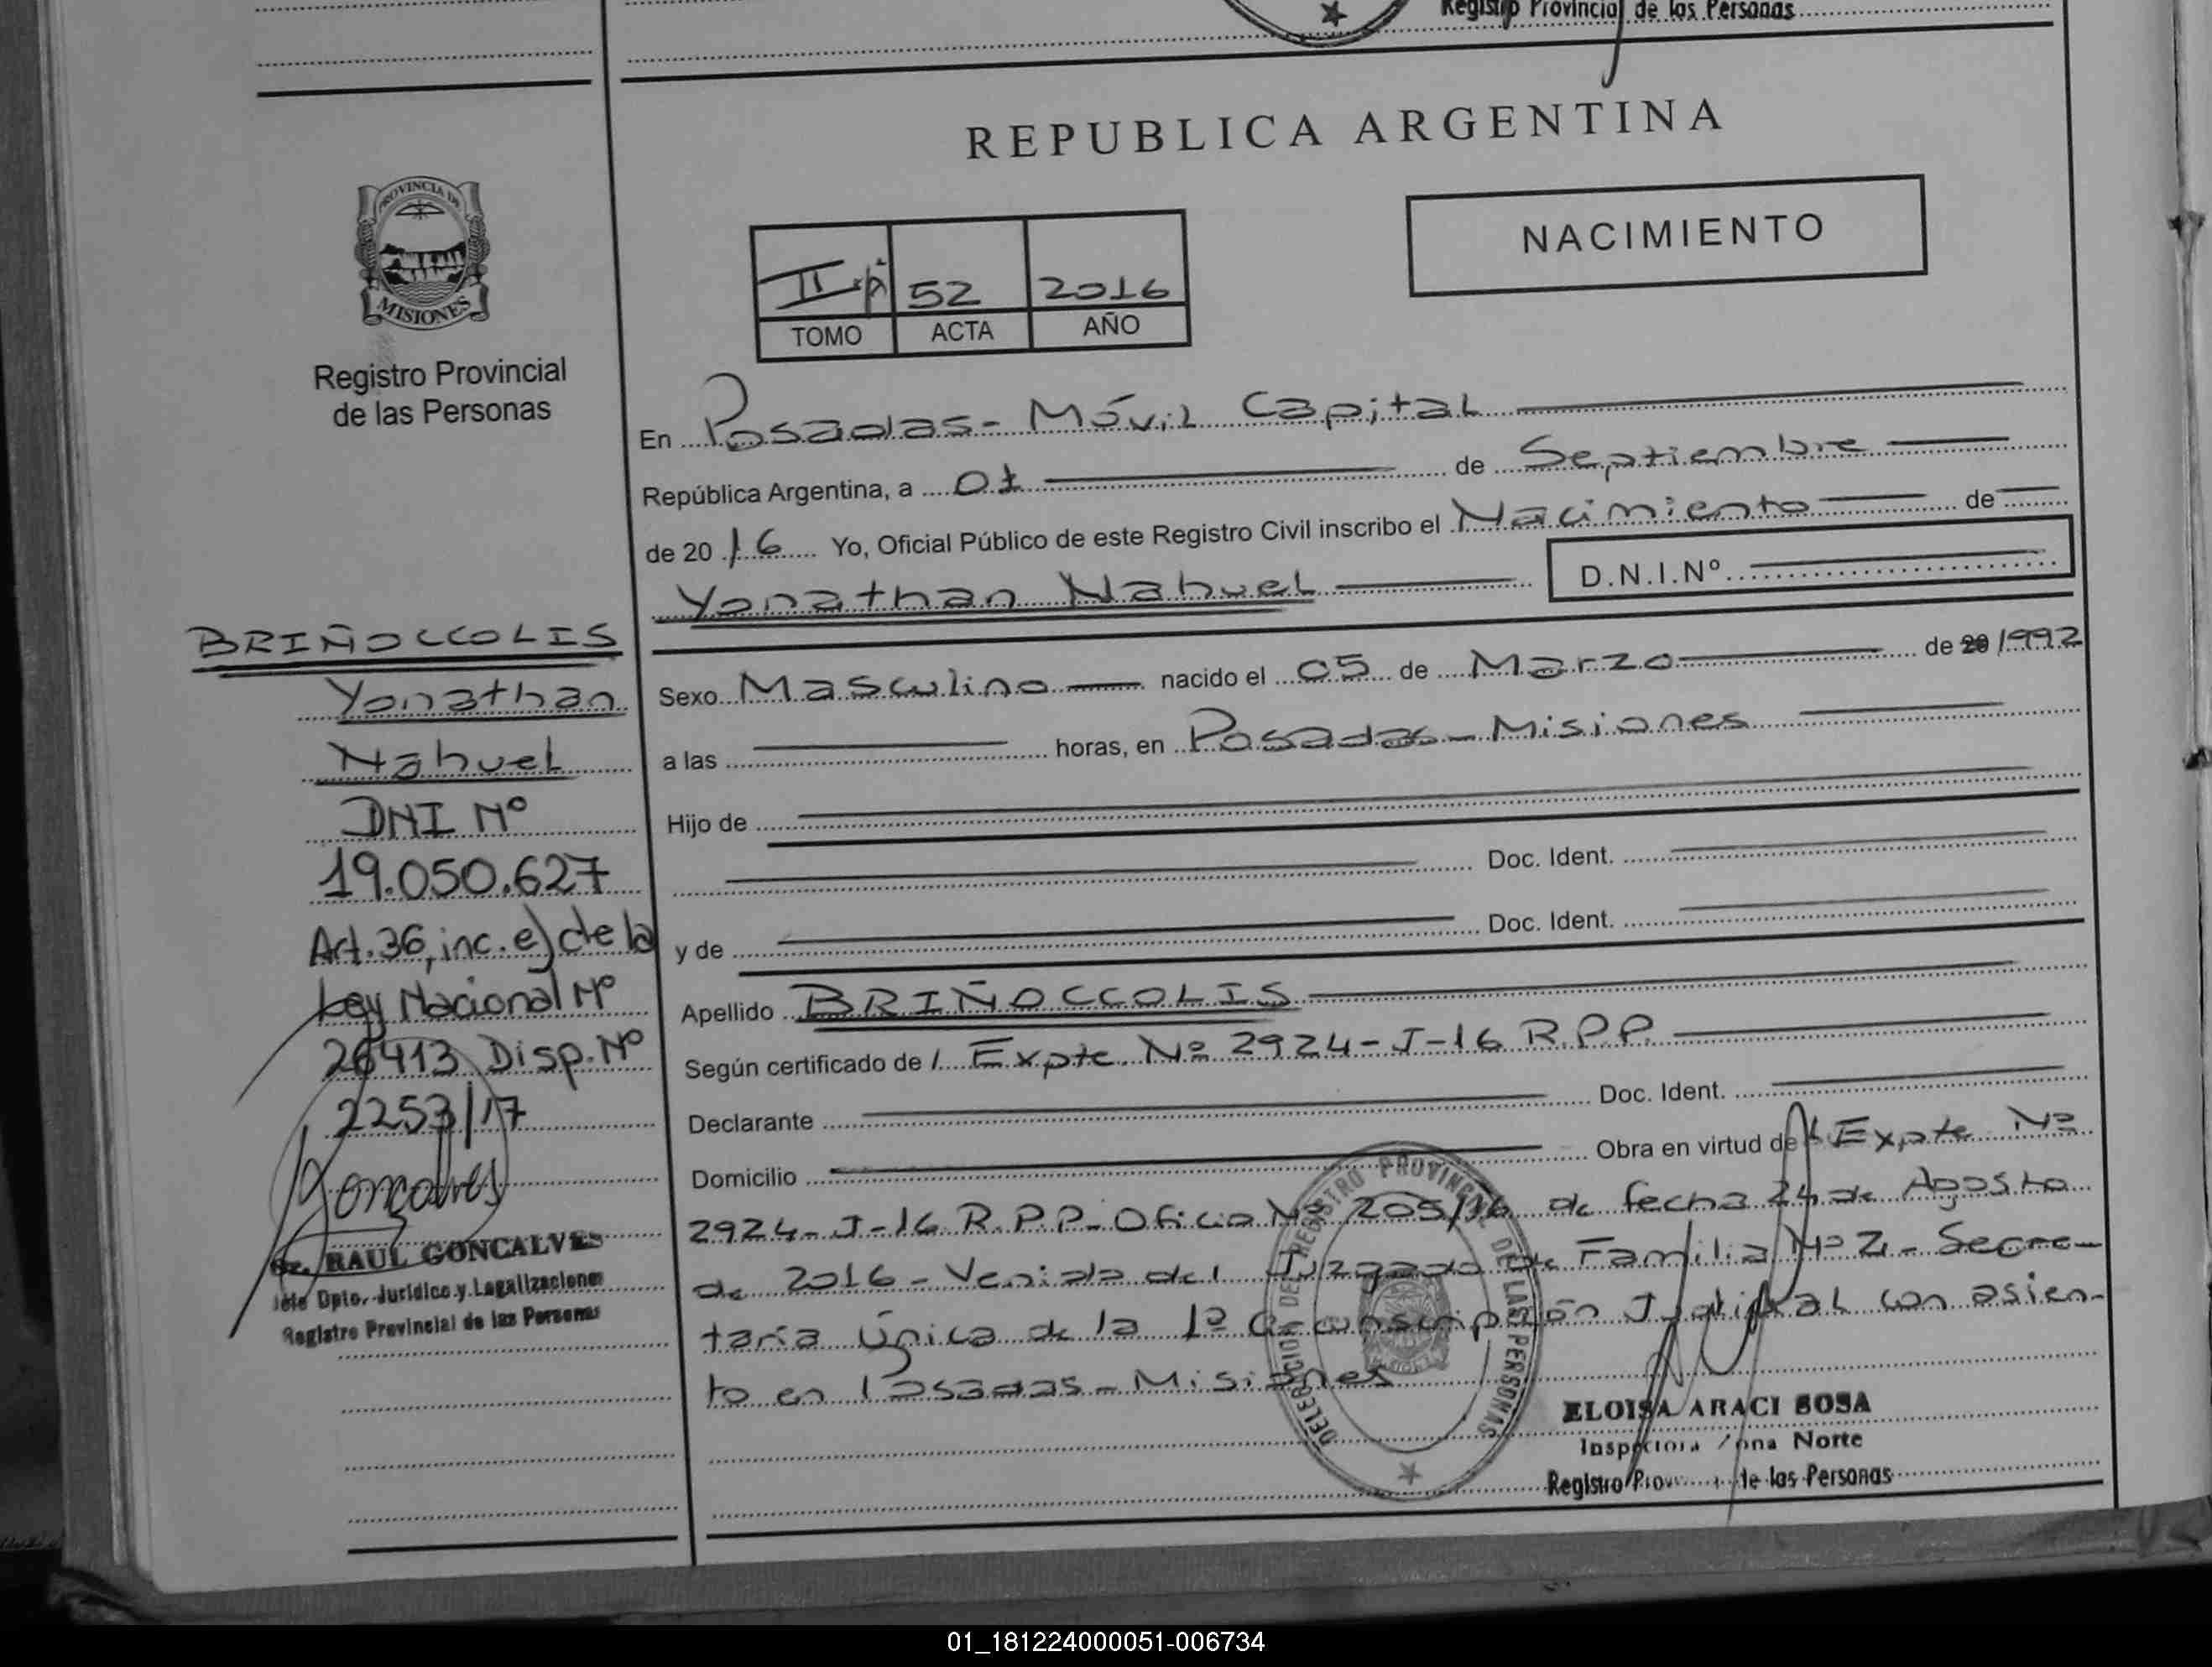 Registro Provincial de las Personas
REPUBLICA ARGENTINA
NACIMIENTO
II 52 2016
TOMO ACTA AÑO
PROVINCIA DE
MISIONES
Registro Provincial
de las Personas
BRIÑOCCOLIS
Yonathan
Nahuel
DNI Nº
19.050.627
Art. 36, inc. e) de la
Ley Nacional Nº
26413 Disp. Nº
2253/17
Goncalves
RAUL GONCALVES
Jefe Dpto. Jurídico y Legalizaciones
Registro Provincial de las Personas
En Posadas - Móvil Capital
República Argentina, a 01 de Septiembre
de 2016 Yo, Oficial Público de este Registro Civil inscribo el Nacimiento de
Yonathan Nahuel D.N.I.Nº
Sexo Masculino nacido el 05 de Marzo de 20 1992
a las horas, en Posadas - Misiones
Hijo de
Doc. Ident.
y de Doc. Ident.
Apellido BRIÑOCCOLIS
Según certificado de / Expte. Nº 2924-J-16 R.P.P.
Declarante Doc. Ident.
Domicilio Obra en virtud de Expte Nº
2924-J-16 R.P.P. Oficio Nº 205/16 de fecha 24 de Agosto
de 2016 - Venido del Juzgado de Familia Nº 2 - Secre-
taría Única de la 1º Circunscripción Judicial con asien-
to en Posadas - Misiones
DELEGACION DEL REGISTRO PROVINCIAL DE LAS PERSONAS
ELOISA ARACI SOSA
Inspectora Zona Norte
Registro Prov de las Personas
01_181224000051-006734